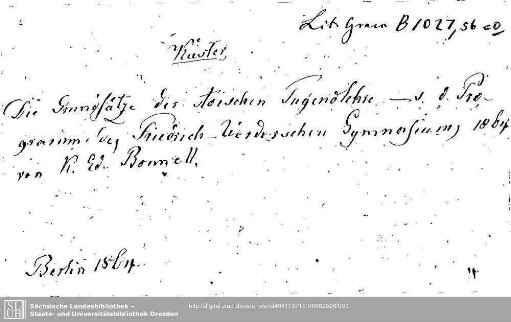 Lit. Graeca B 1027, 56 co
Küster,
Die Grundsätze der stoischen Tugendlehre — s. d. Pro-
gramm des Friedrich-Werderschen Gymnasiums 1864
von K. Ed. Bonnell.
Berlin 1864.
4
Sächsische Landesbibliothek –
Staats- und Universitätsbibliothek Dresden